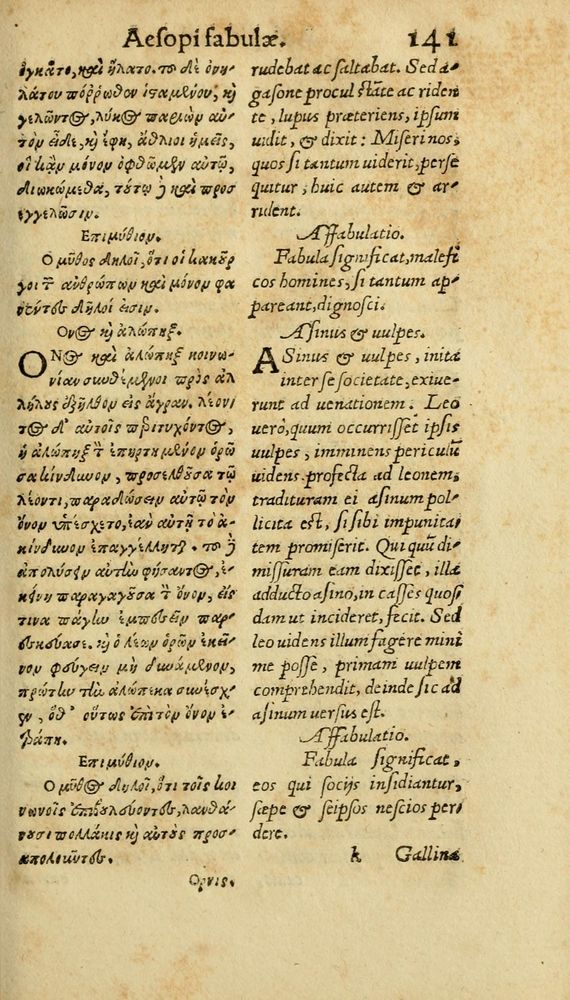 Aesopi fabulæ. 141
ὀγκᾶτο, καὶ ἥλατο. τοῦ δὲ ὀνη-
λάτου πόῤῥωθεν ἱσταμένου, καὶ
γελῶντος, λύκος παριὼν αὐ-
τὸν εἶδε, καὶ ἔφη, ἄθλιοι ἡμεῖς,
οἳ κἂν μόνον ὀφθῶμεν αὐτῷ,
διωκώμεθα, τούτῳ δὲ καὶ προσ
εγγελῶσιν.
Ἐπιμύθιον.
Ὁ μῦθος δηλοῖ, ὅτι οἱ κακοῦρ
γοι τῶν ἀνθρώπων καὶ μόνον φα
νέντες δῆλοί εἰσιν.
Ὄνος καὶ ἀλώπηξ.
ΟΝος καὶ ἀλώπηξ κοινω-
νίαν συνθέμενοι πρὸς ἀλ
λήλους ἐξῆλθον εἰς ἄγραν. λέοντ
τος δ' αὐτοῖς περιτυχόντος,
ἡ ἀλώπηξ τὸν ἐπηρτημένον ὁρῶ
σα κίνδυνον, προσελθοῦσα τῷ
λέοντι, παραδώσειν αὐτῷ τὸν
ὄνον ὑπέσχετο, ἐὰν αὐτῇ τὸ ἀ-
κίνδυνον ἐπαγγέλληται. τοῦ δὲ
ἀπολύσειν αὐτὴν φήσαντος, ἐ-
κείνη παραγαγοῦσα τὸν ὄνον, εἴς
τινα πάγην ἐμπεσεῖν παρ-
εσκεύασε. καὶ ὁ λέων ὁρῶν ἐκεῖ-
νον φεύγειν μὴ δυνάμενον,
πρώτην τὴν ἀλώπεκα συνέσχ-
εν, εἶθ' οὕτως ἐπὶ τὸν ὄνον ἐ-
τράπη.
Ἐπιμύθιον.
Ὁ μῦθος δηλοῖ, ὅτι τοῖς κοι
νωνοῖς ἐπιβουλεύοντες, λανθά-
νουσι πολλάκις καὶ αὑτοὺς προσ-
απολοῦντες.
Ὄρνις.
rudebat ac saltabat. Sed a-
gasone procul stāte ac riden
te, lupus præteriens, ipsum
uidit, & dixit: Miseri nos,
quos si tantum uiderit, perse
quitur, huic autem & ar-
rident.
Affabulatio.
Fabula significat, malefi
cos homines, si tantum ap-
pareant, dignosci.
Asinus & uulpes.
ASinus & uulpes, inita
inter se societate, exiue-
runt ad uenationem. Leo
uero, quum occurrisset ipsis
uulpes, imminens periculū
uidens. profecta ad leonem,
tradituram ei asinum pol-
licita est, si sibi impunita
tem promiserit. Qui quū di-
missuram eam dixisset, illa
adducto asino, in casses quos
dam ut incideret, fecit. Sed
leo uidens illum fugere mini
me posse, primam uulpem
comprehendit, deinde sic ad
asinum uersus est.
Affabulatio.
Fabula significat,
eos qui socijs insidiantur,
sæpe & seipsos nescios per
dere.
k Gallina